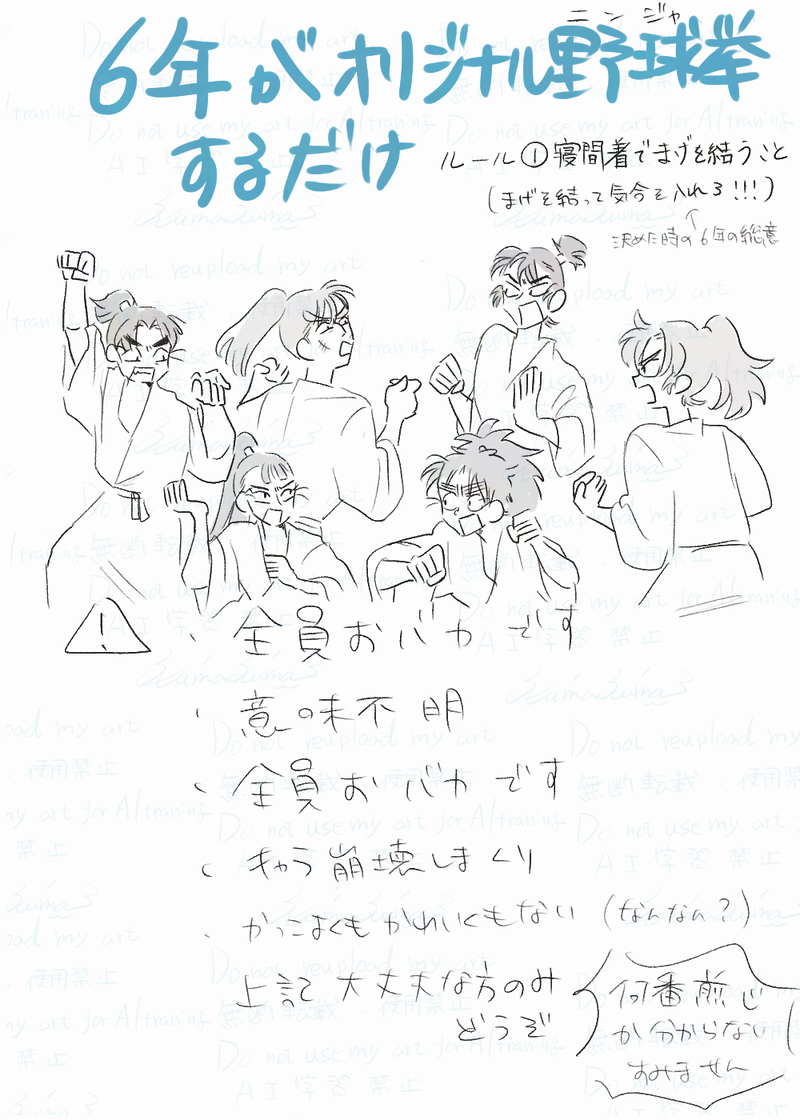 ニンジャ
6年がオリジナル野球拳
するだけ
ルール①寝間着でまげを結うこと
(まげを結って気合を入れろ!!!)
↑
決めた時の6年の総意
!
・全員おバカです
・意味不明
・全員おバカです
・キャラ崩壊しまくり
・かっこよくもかわいくもない(なんなん?)
上記大丈夫な方のみ
どうぞ
何番煎じ
か分からない
すみません
Do not reupload my art
無断転載・使用禁止
Do not use my art for AI traning
AI学習禁止